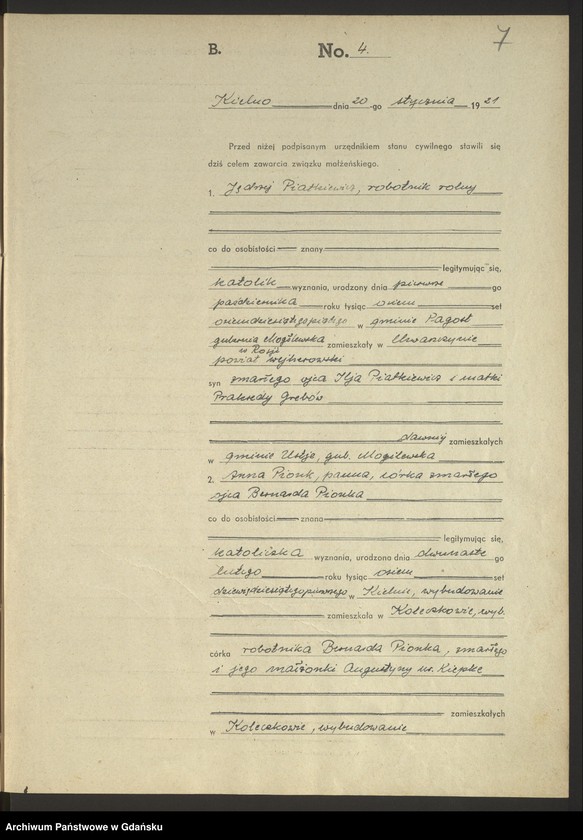 7
B. No. 4.
Kielno dnia 20-go stycznia 1921
Przed niżej podpisanym urzędnikiem stanu cywilnego stawili się
dziś celem zawarcia związku małżeńskiego.
1. Jędrzej Piatkiewicz, robotnik rolny
co do osobistości znany
legitymując się,
katolik wyznania, urodzony dnia pierwsze go
października roku tysiąc osiem set
osiemdziesiątego piątego w gminie Pagost
gubernia Mogilewska zamieszkały w
w Rosji
powiat wejherowski
syn zmarłego ojca Ilja Piatkiewicz i matki
Praksedy Grebów
dawniej zamieszkałych
w gminie Uslje, gub. Mogilewska
2. Anna Pionk, panna, córka zmarłego
ojca Bernarda Pionka
co do osobistości znana
legitymując się,
katolicka wyznania, urodzona dnia dwunaste go
lutego roku tysiąc osiem set
dziewięćdziesiątego pierwszego w Kielnie, wybudowanie
zamieszkała w Koleczkowie, wyb.
córka robotnika Bernarda Pionka, zmarłego
i jego małżonki Augustyny ur. Kiepke
zamieszkałych
w Koleczkowie, wybudowanie
Archiwum Państwowe w Gdańsku